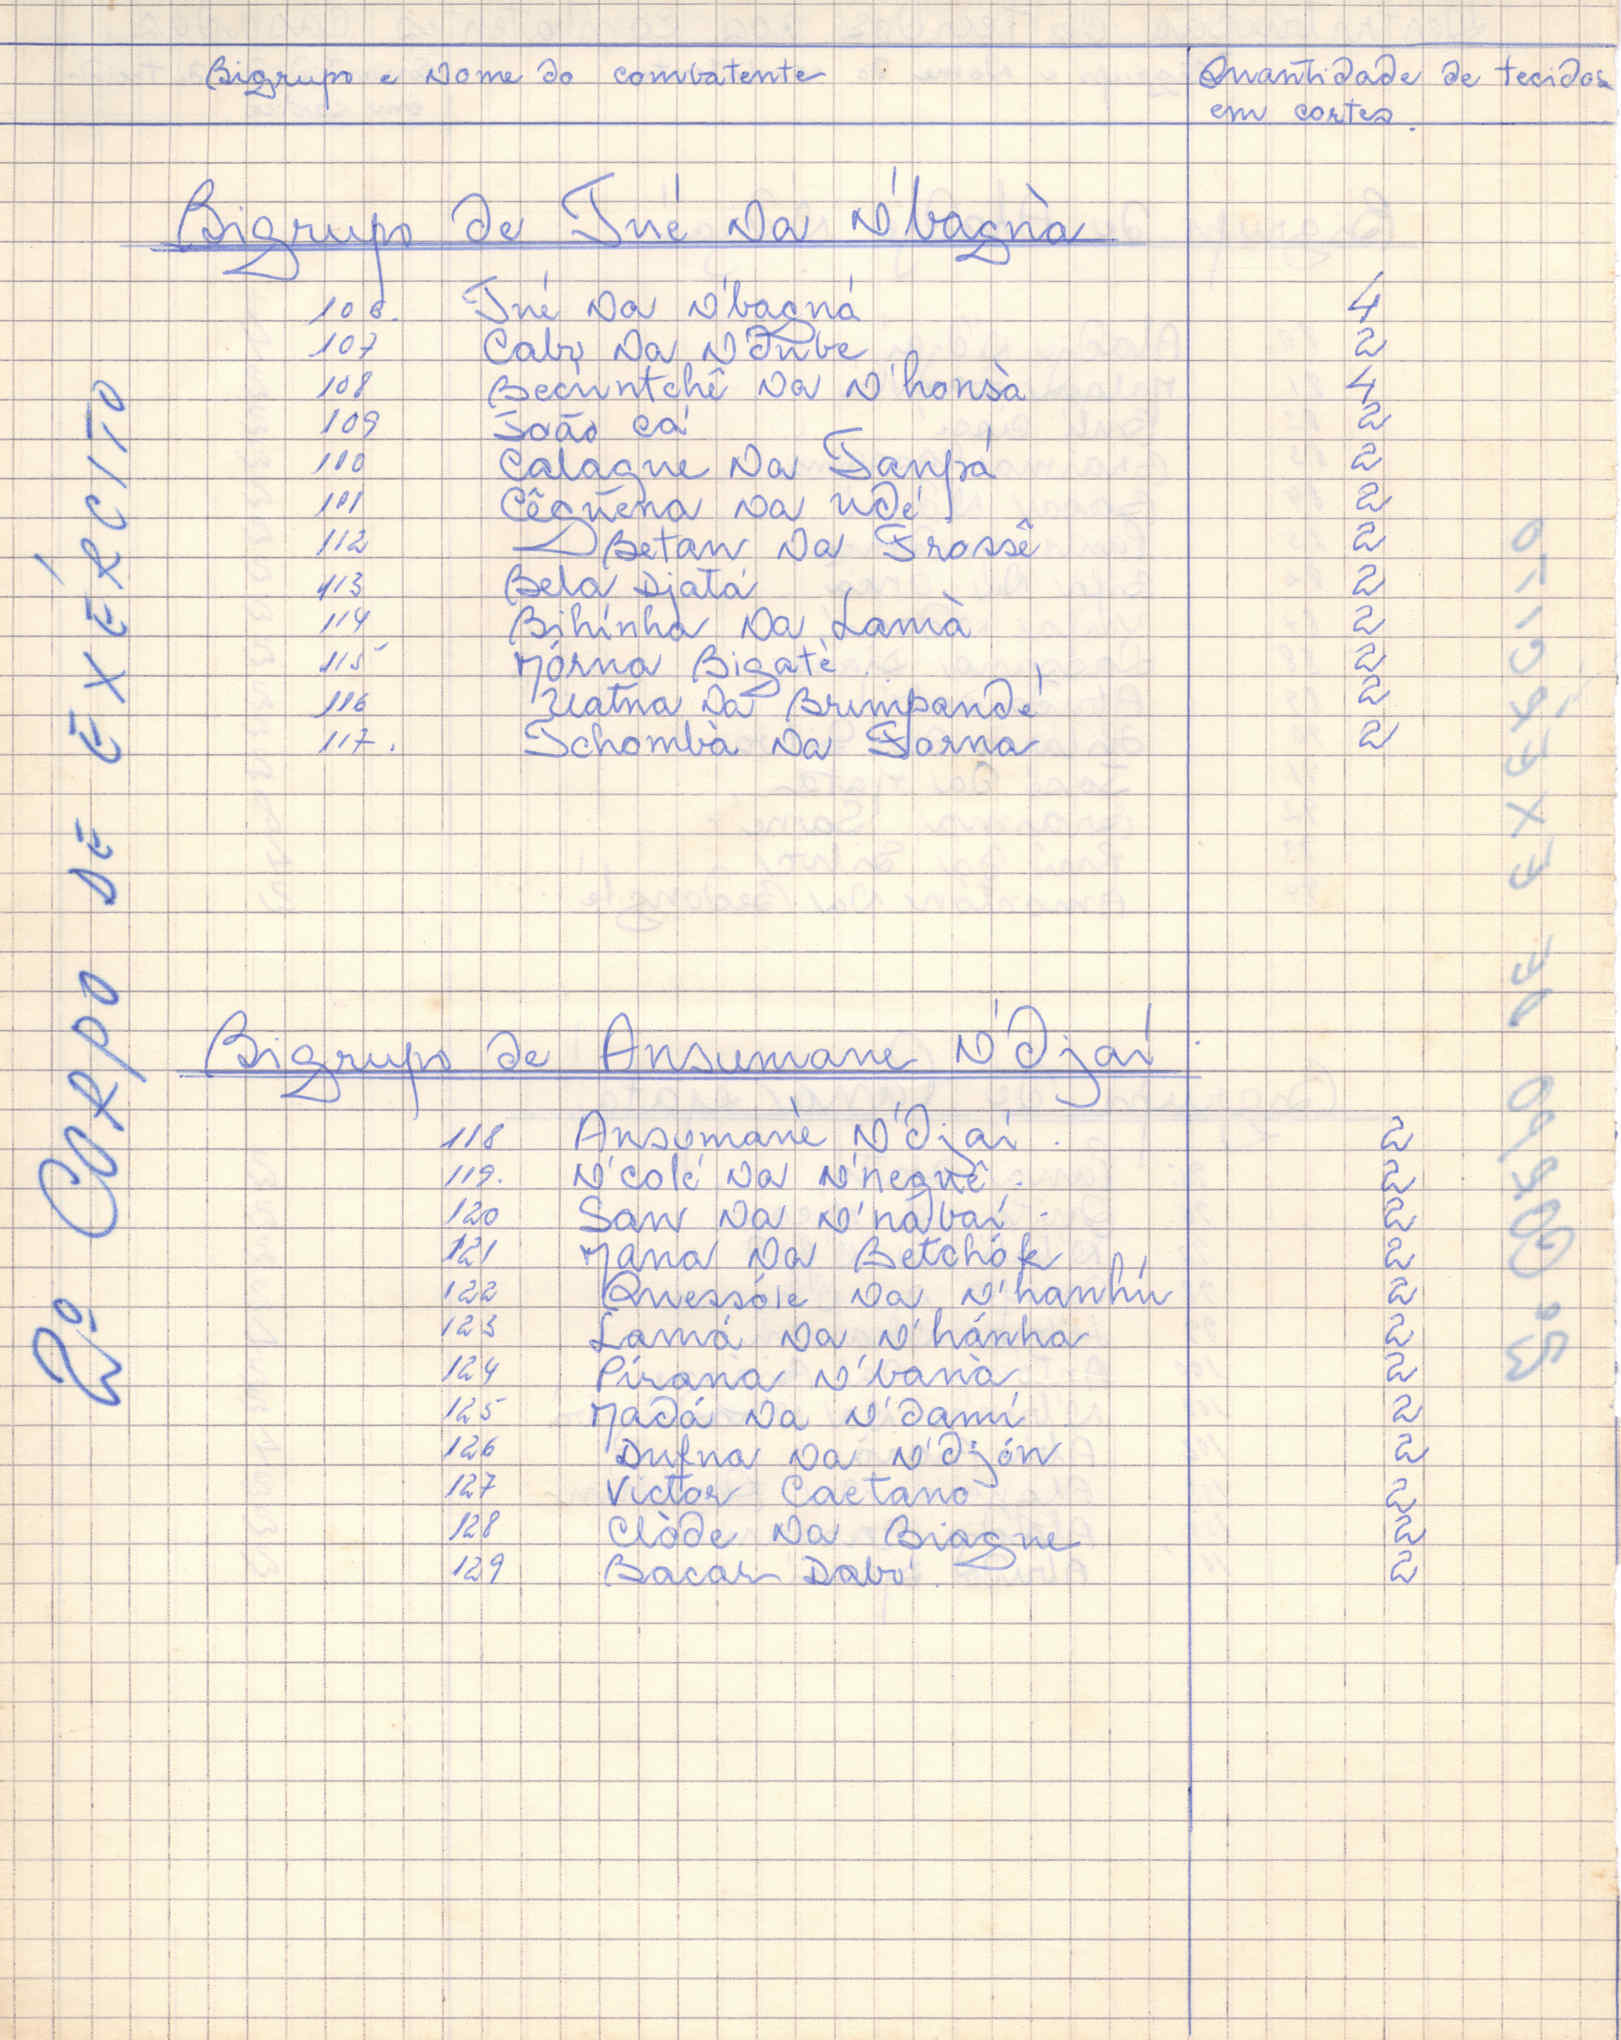 Bigrupo e Nome do combatente Quantidade de tecidos
em cortes.
Bigrupo de Tné Na N'bagnà
106. Tné Na N'bagná 4
107 Cabi Na N'Dube 2
108 Becuntchê Na N'honsà 4
109 João Cá 2
110 Calague Na Tanpá 2
111 Cêguena Na Udé 2
112 Betan Na Frossê 2
113 Bela Djatá 2
114 Bihinha Na Lamà 2
115 Mórna Bigatè 2
116 Uatna Na Brumpandé 2
117. Tchombà Na Forna 2
2º CORPO DE EXÉRCITO
Bigrupo de Ansumane N'Djaí
118 Ansumanè N'Djaí. 2
119. N'colé Na N'neguê. 2
120 San Na N'nábaí. 2
121 Mana Na Betchófe 2
122 Quessóie Na N'hanhú 2
123 Lamá Na N'hánha 2
124 Pírana N'banà 2
125 Madá Na N'damí 2
126 Dufna Na N'Djón 2
127 Victor Caetano 2
128 Clòde Na Biague 2
129 Bacar Dabó. 2